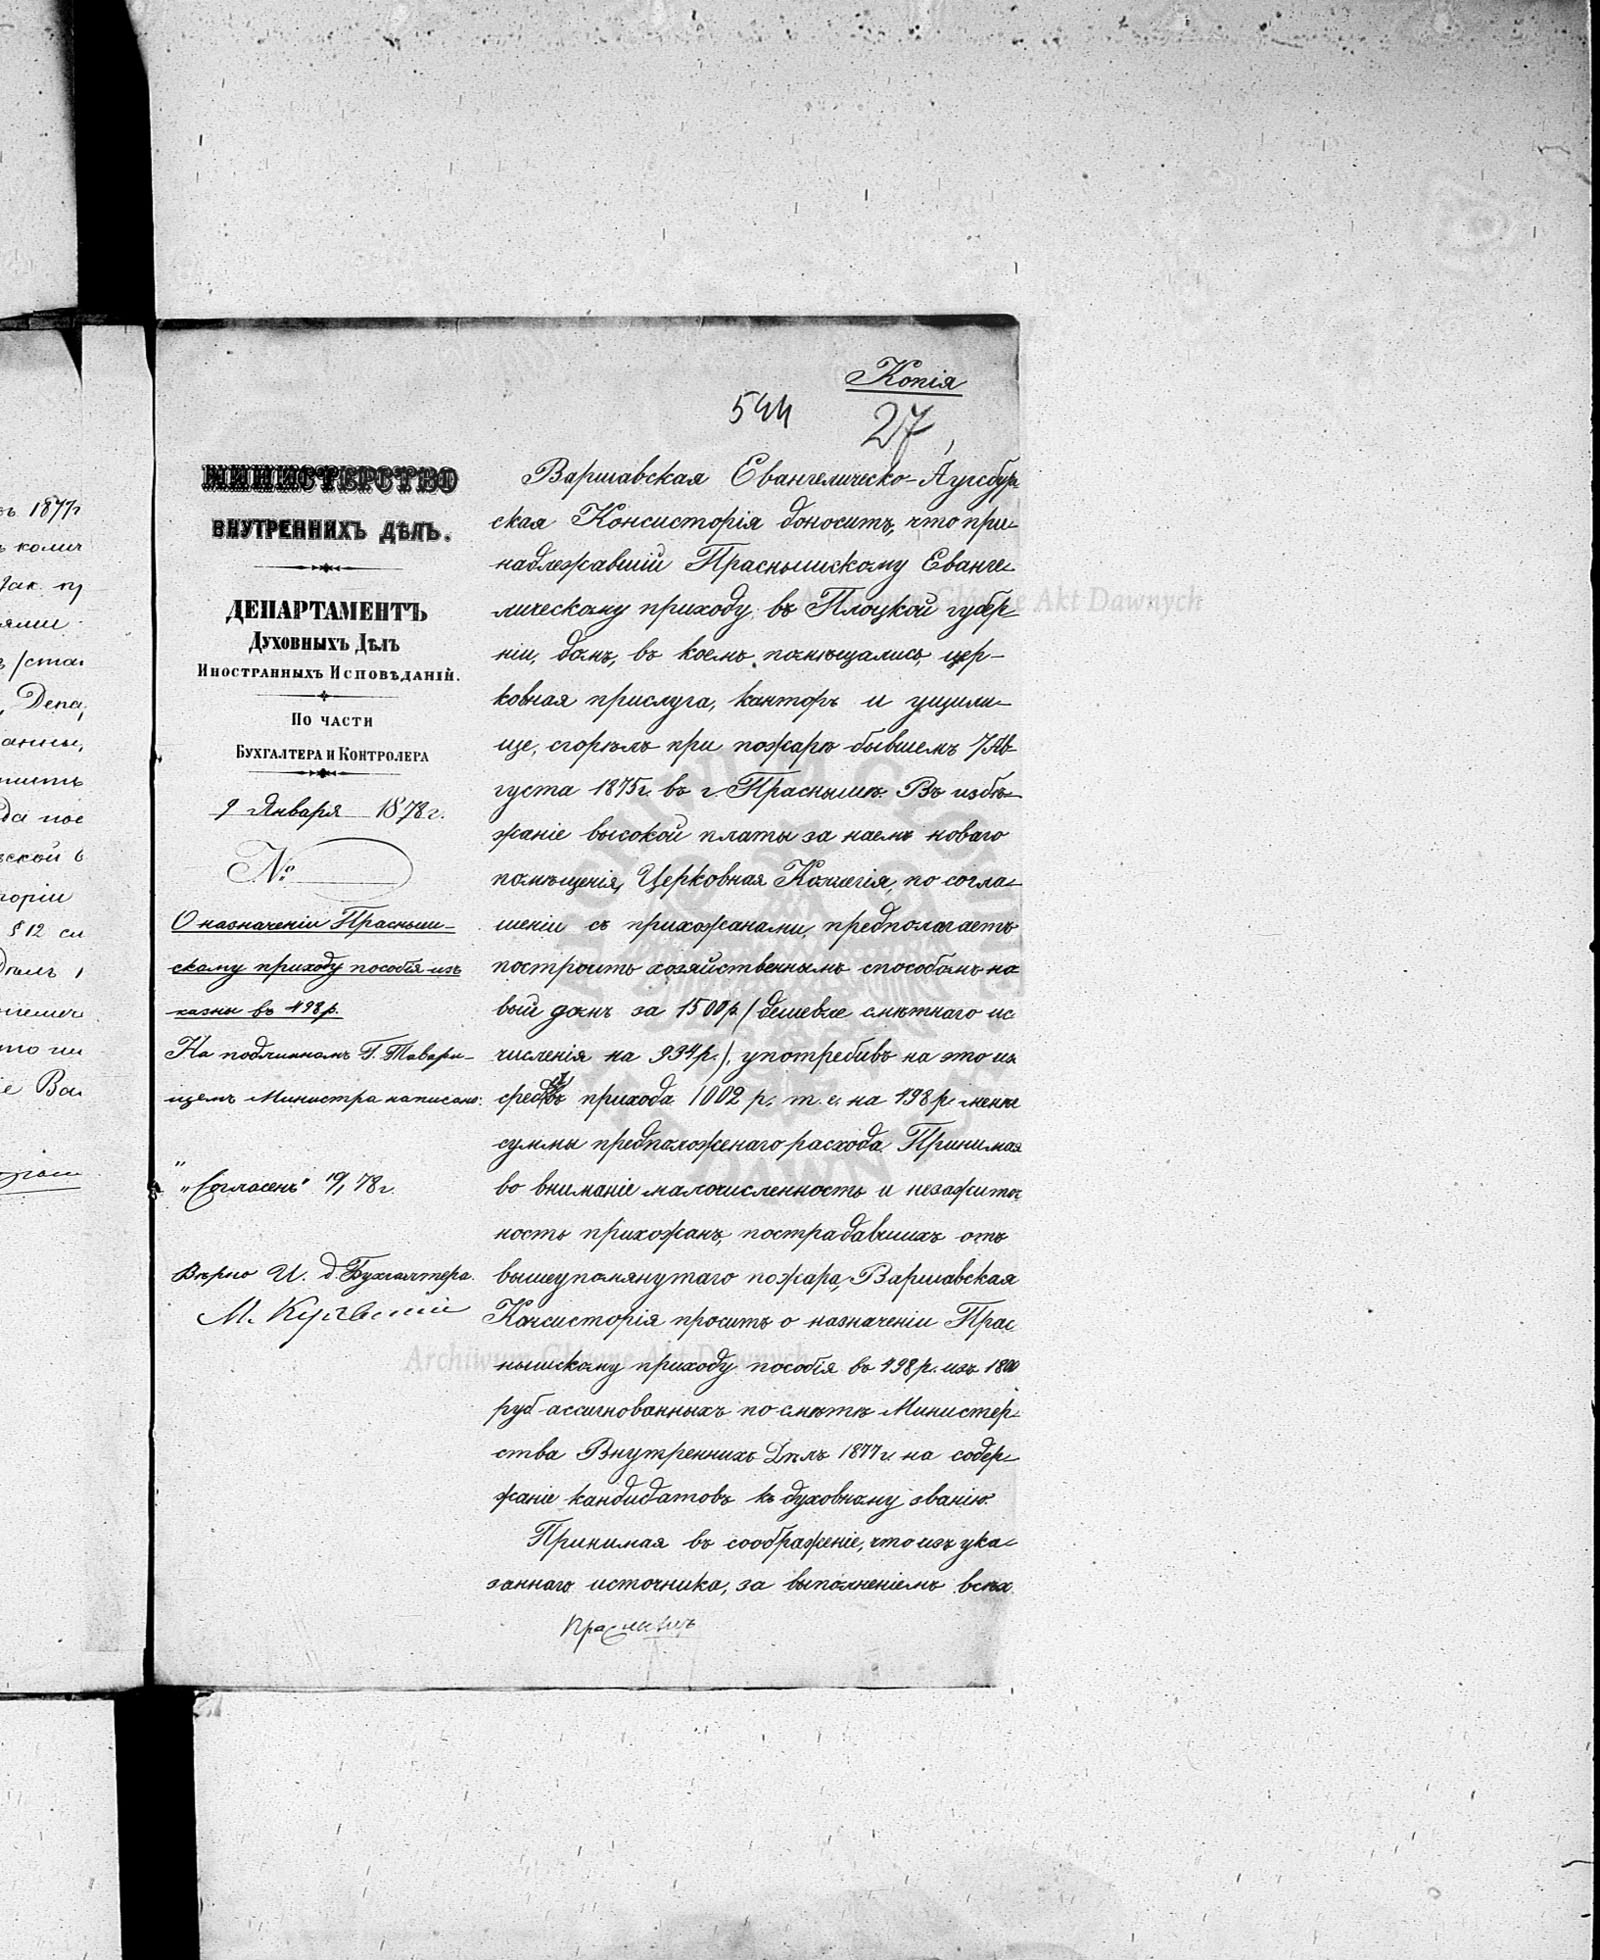 Копія
544
27
МИНИСТЕРСТВО
ВНУТРЕННИХЪ ДѢЛЪ.
ДЕПАРТАМЕНТЪ
ДУХОВНЫХЪ ДѢЛЪ
ИНОСТРАННЫХЪ ИСПОВѢДАНІЙ.
ПО ЧАСТИ
БУХГАЛТЕРА И КОНТРОЛЕРА
9 Января 1878 г.
№
О назначеніи Прасныш-
скому приходу пособія изъ
казны въ 498 р.
На подлинномъ Г. Товари-
щемъ Министра написано:
„Согласенъ" 19/I 78 г.
Вѣрно И. д. Бухгалтера
М.
Варшавская Евангелическо-Аугсбург
ская Консисторія доноситъ, что при-
надлежавшій Праснышскому Еванге-
лическому приходу, въ Плоцкой губер-
ніи, домъ, въ коемъ помѣщались цер-
ковная прислуга, канторъ и учили-
ще, сгорѣлъ при пожарѣ бывшемъ 7 Ав-
густа 1875 г. въ г. Праснышѣ. Въ избѣ-
жаніе высокой платы за наемъ новаго
помѣщенія, Церковная Коллегія, по согла-
шенію съ прихожанами, предполагаетъ
построить хозяйственнымъ способомъ но
вый домъ за 1500 р. (дешевле смѣтнаго ис
численія на 934 р.), употребивъ на это из
средствъ прихода 1002 р. т. е. на 498 р. менѣе
суммы предположенаго расхода. Принимая
во вниманіе малочисленность и незажиточ
ность прихожанъ, пострадавшихъ отъ
вышеупомянутаго пожара, Варшавская
Консисторія проситъ о назначеніи Прас
нышскому приходу пособія въ 498 р. изъ 1800
руб ассигнованныхъ по смѣтѣ Министер-
ства Внутреннихъ Дѣлъ 1877 г. на содер-
жаніе кандидатовъ къ духовному званію.
Принимая въ соображеніе, что изъ ука-
заннаго источника, за выполненіемъ всѣх
1877г
Депа
§ 12
Archiwum Główne Akt Dawnych
Archiwum Główne Akt Dawnych